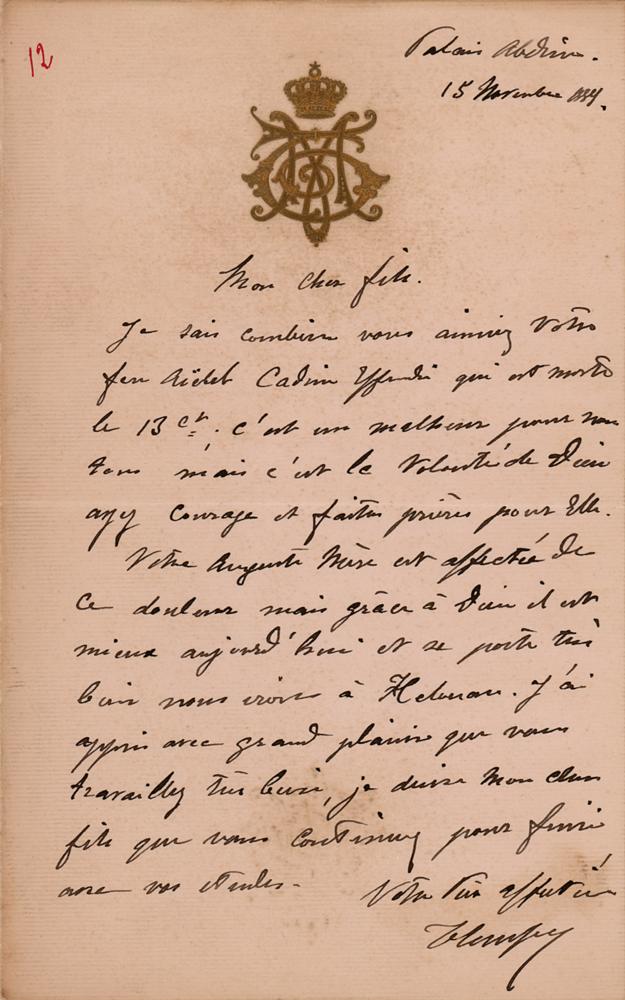 12
Palais Abdine.
15 Novembre 1889.
Mon cher fils.
Je sais combien vous aimiez votre
feu Cadin Effendi qui est morte
le 13 ct. c'est un malheur pour nous
tous mais c'est la Volonté de Dieu
ayez courage et faites prières pour Elle.
Votre Auguste Mère est affectée de
ce douleur mais grâce à Dieu il est
mieux aujourd'hui et se porte très
bien nous irons à Helouan. J'ai
appris avec grand plaisir que vous
travaillez très bien, je désire mon cher
fils que vous continuez pour finir
avec vos études.
Votre Père affectué